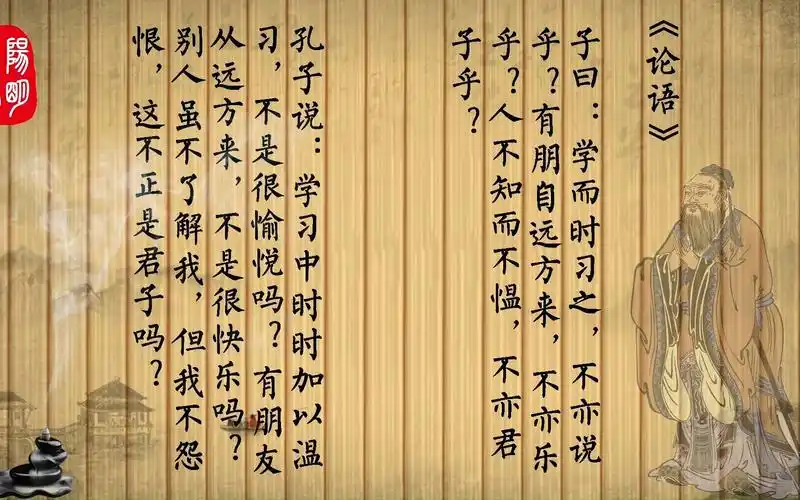 《论语》
子曰：学而时习之，不亦说
乎？有朋自远方来，不亦乐
乎？人不知而不愠，不亦君
子乎？
孔子说：学习中时时加以温
习，不是很愉悦吗？有朋友
从远方来，不是很快乐吗？
别人虽不了解我，但我不怨
恨，这不正是君子吗？
陽明